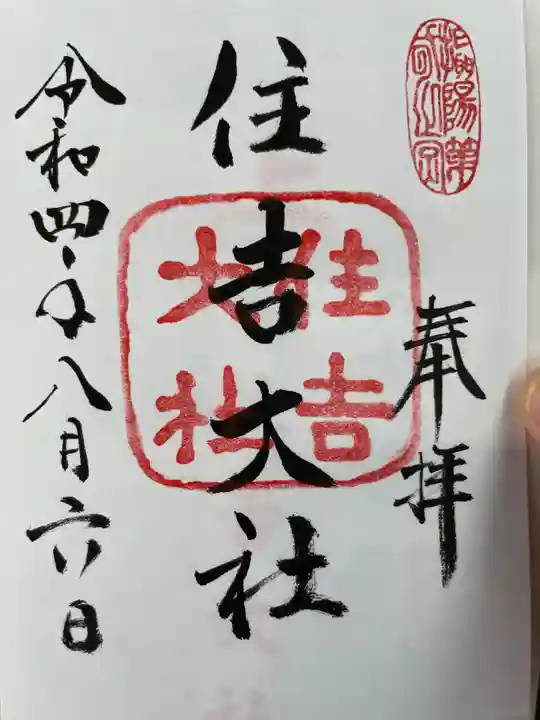 奉拝
住吉大社
住吉大社
令和四年八月六日